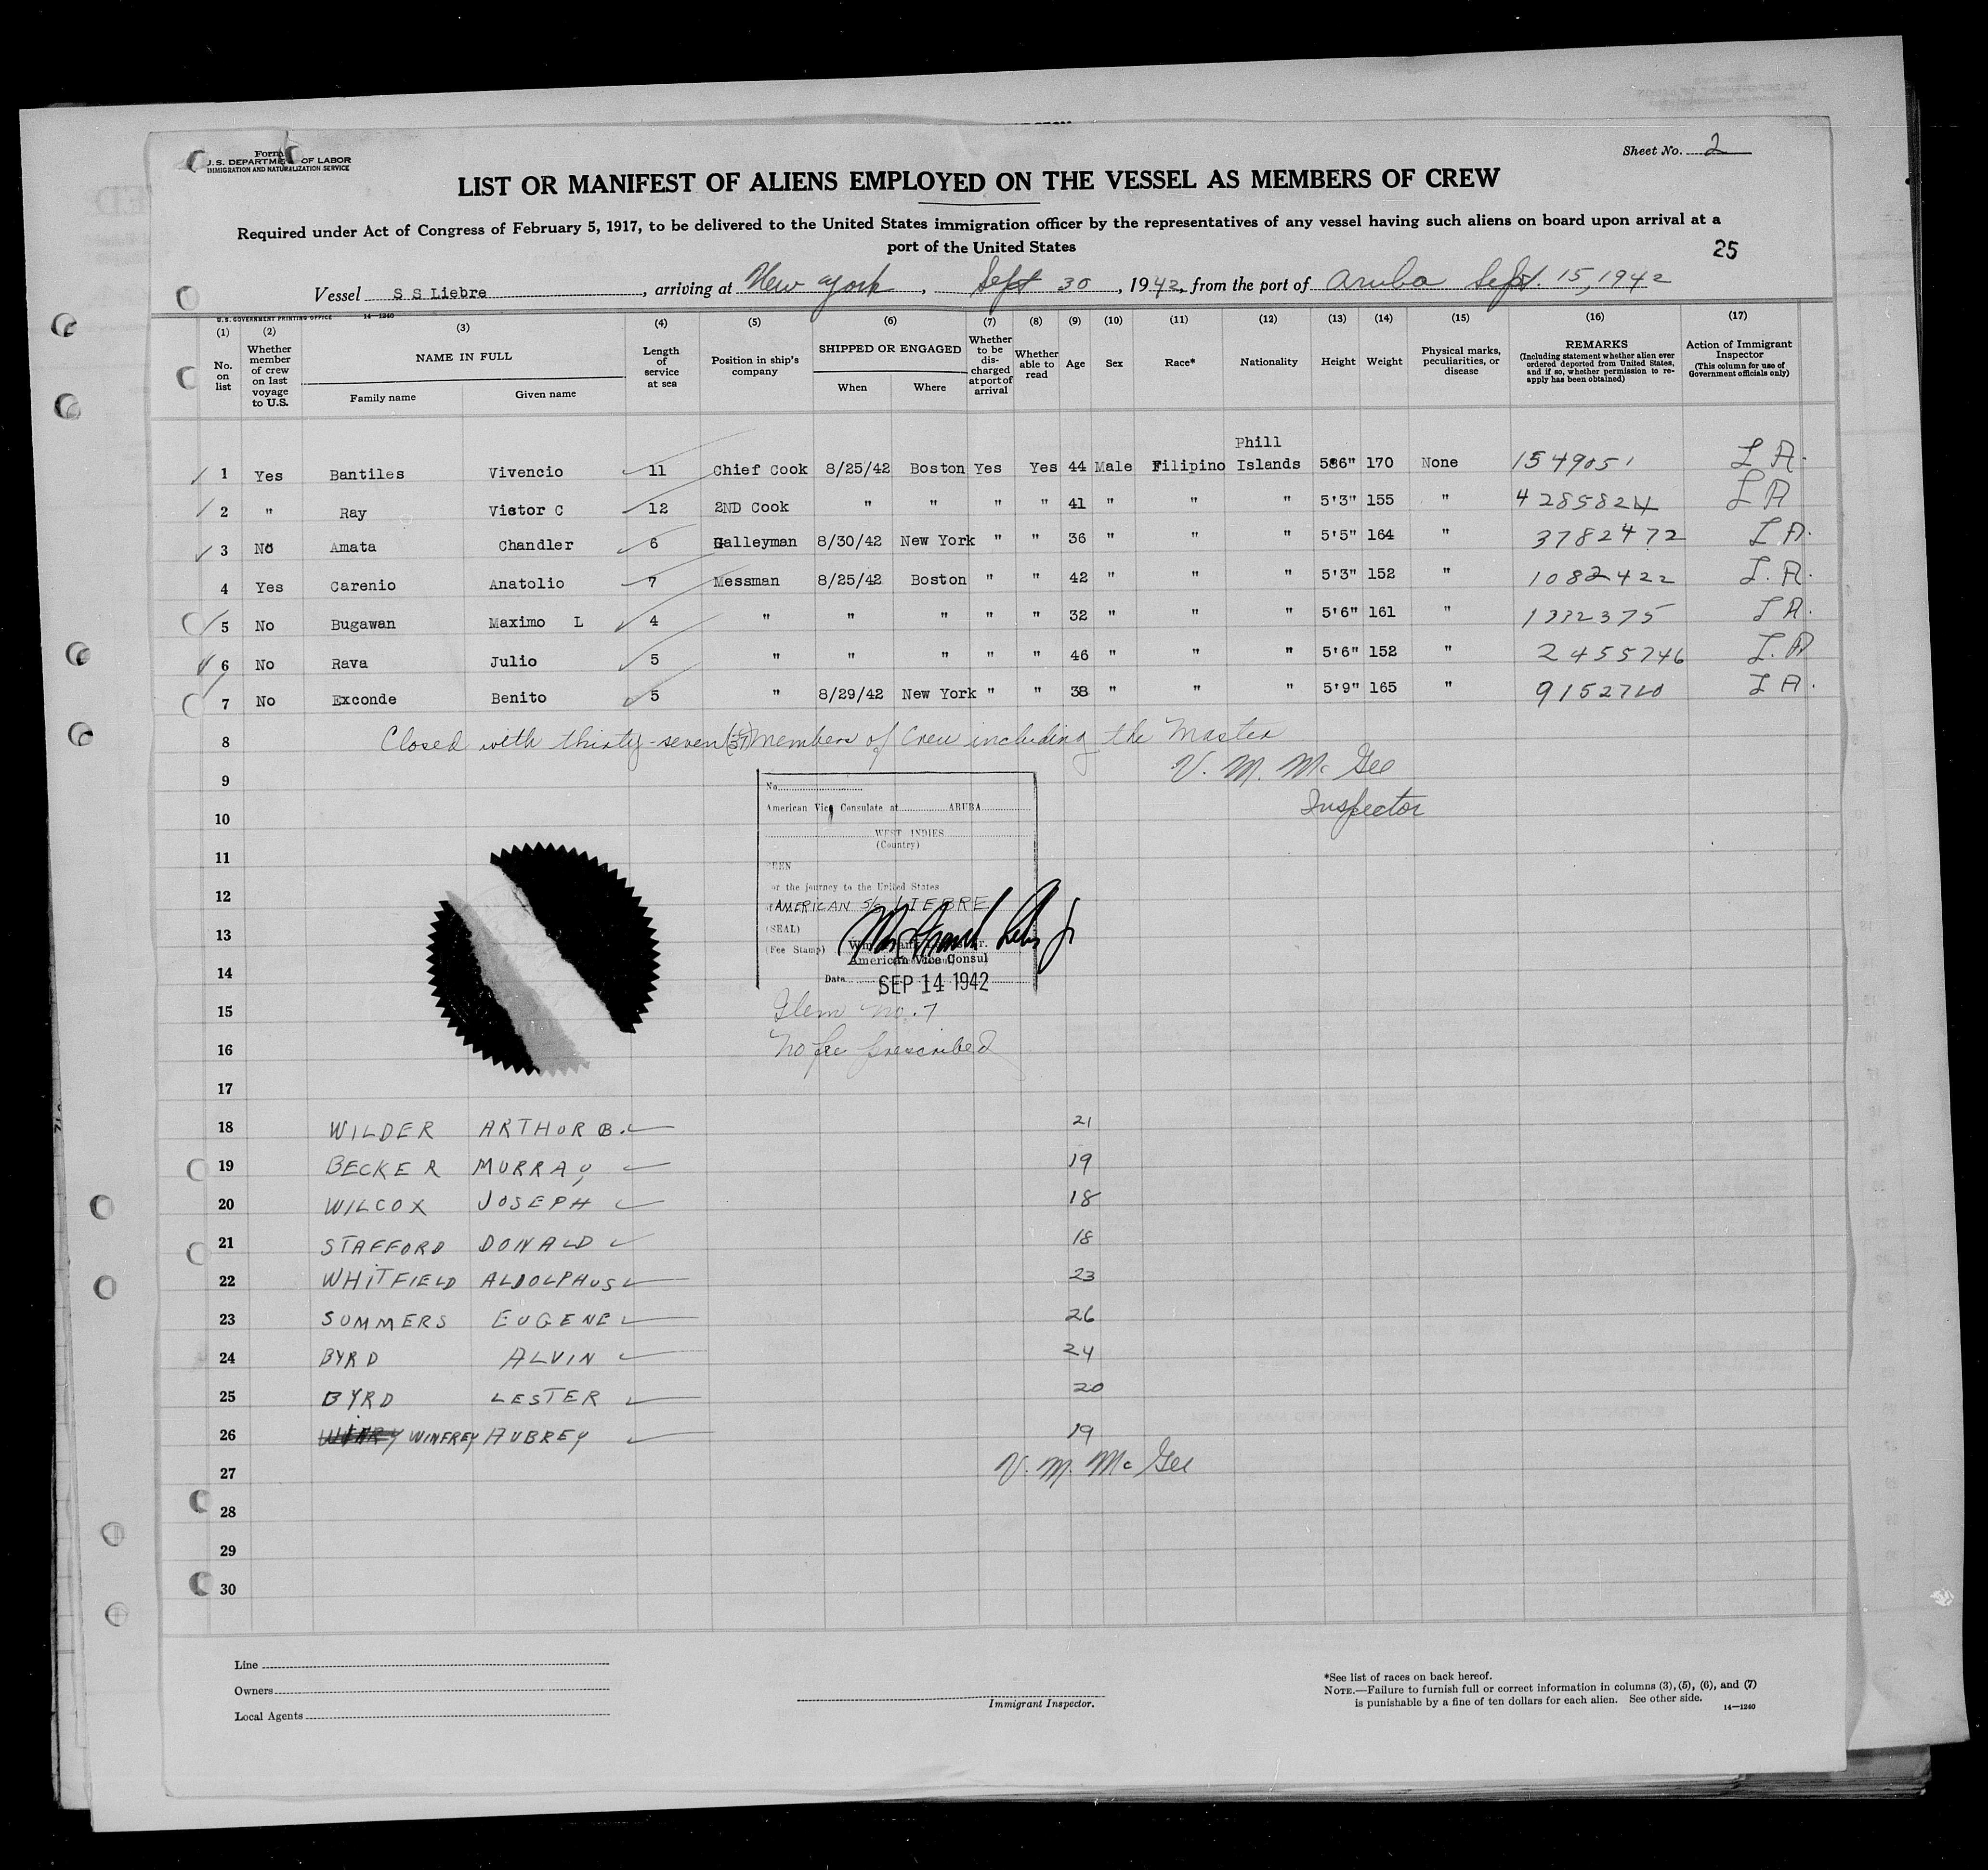 Form
U.S. DEPARTMENT OF LABOR
IMMIGRATION AND NATURALIZATION SERVICE
Sheet No. 2
LIST OR MANIFEST OF ALIENS EMPLOYED ON THE VESSEL AS MEMBERS OF CREW
Required under Act of Congress of February 5, 1917, to be delivered to the United States immigration officer by the representatives of any vessel having such aliens on board upon arrival at a
port of the United States
25
Vessel S S Liebre, arriving at New York, Sept 30, 1942, from the port of Aruba Sept. 15, 1942
U.S. GOVERNMENT PRINTING OFFICE 14—1240
(1) (2) (3) (4) (5) (6) (7) (8) (9) (10) (11) (12) (13) (14) (15) (16) (17)
No. on list
Whether member of crew on last voyage to U.S.
NAME IN FULL
Family name
Given name
Length of service at sea
Position in ship's company
SHIPPED OR ENGAGED
When
Where
Whether to be discharged at port of arrival
Whether able to read
Age
Sex
Race*
Nationality
Height
Weight
Physical marks, peculiarities, or disease
REMARKS
(Including statement whether alien ever ordered deported from United States, and if so, whether permission to reapply has been obtained)
Action of Immigrant Inspector
(This column for use of Government officials only)
Phill
1 Yes Bantiles Vivencio 11 Chief Cook 8/25/42 Boston Yes Yes 44 Male Filipino Islands 586" 170 None 1549051 I A.
2 " Ray Victor C 12 2ND Cook " " " " 41 " " " 5'3" 155 " 4285824 I A
3 No Amata Chandler 6 Galleyman 8/30/42 New York " " 36 " " " 5'5" 164 " 3782472 I A.
4 Yes Carenio Anatolio 7 Messman 8/25/42 Boston " " 42 " " " 5'3" 152 " 1082422 I. A.
5 No Bugawan Maximo L 4 " " " " " 32 " " " 5'6" 161 " 1332375 I A.
6 No Rava Julio 5 " " " " " 46 " " " 5'6" 152 " 2455746 I. A
7 No Exconde Benito 5 " 8/29/42 New York " " 38 " " " 5'9" 165 " 9152720 I A.
8 Closed with thirty-seven (37) Members of Crew including the Master
9 V. M. Mc Gee
10 Inspector
No.
American Vice Consulate at ARUBA
WEST INDIES
(Country)
11 SEEN
12 for the journey to the United States
AMERICAN S/S LIEBRE
13 (SEAL)
(Fee Stamp)
14 American Vice Consul
Date SEP 14 1942
15 Item No. 7
16 No fee prescribed
17
18 WILDER ARTHUR B. 21
19 BECKER MURRAY 19
20 WILCOX JOSEPH 18
21 STAFFORD DONALD 18
22 WHITFIELD ALDOLPHUS 23
23 SUMMERS EUGENE 26
24 BYRD ALVIN 24
25 BYRD LESTER 20
26 WINFREY AUBREY 19
27 V. M. Mc Gee
28
29
30
Line
Owners
Local Agents
Immigrant Inspector.
*See list of races on back hereof.
NOTE.—Failure to furnish full or correct information in columns (3), (5), (6), and (7)
is punishable by a fine of ten dollars for each alien. See other side.
14—1240